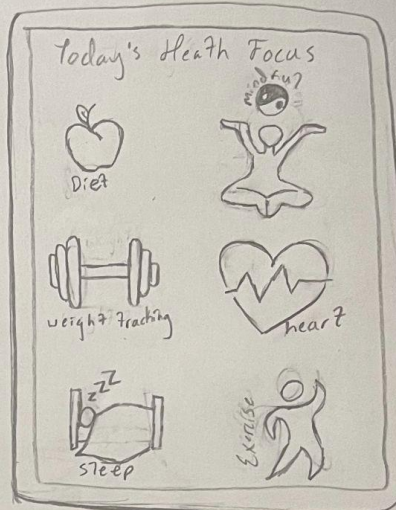 Today's Heath Focus
mindful
Diet
weight tracking
heart
zzZ
sleep
Exercise